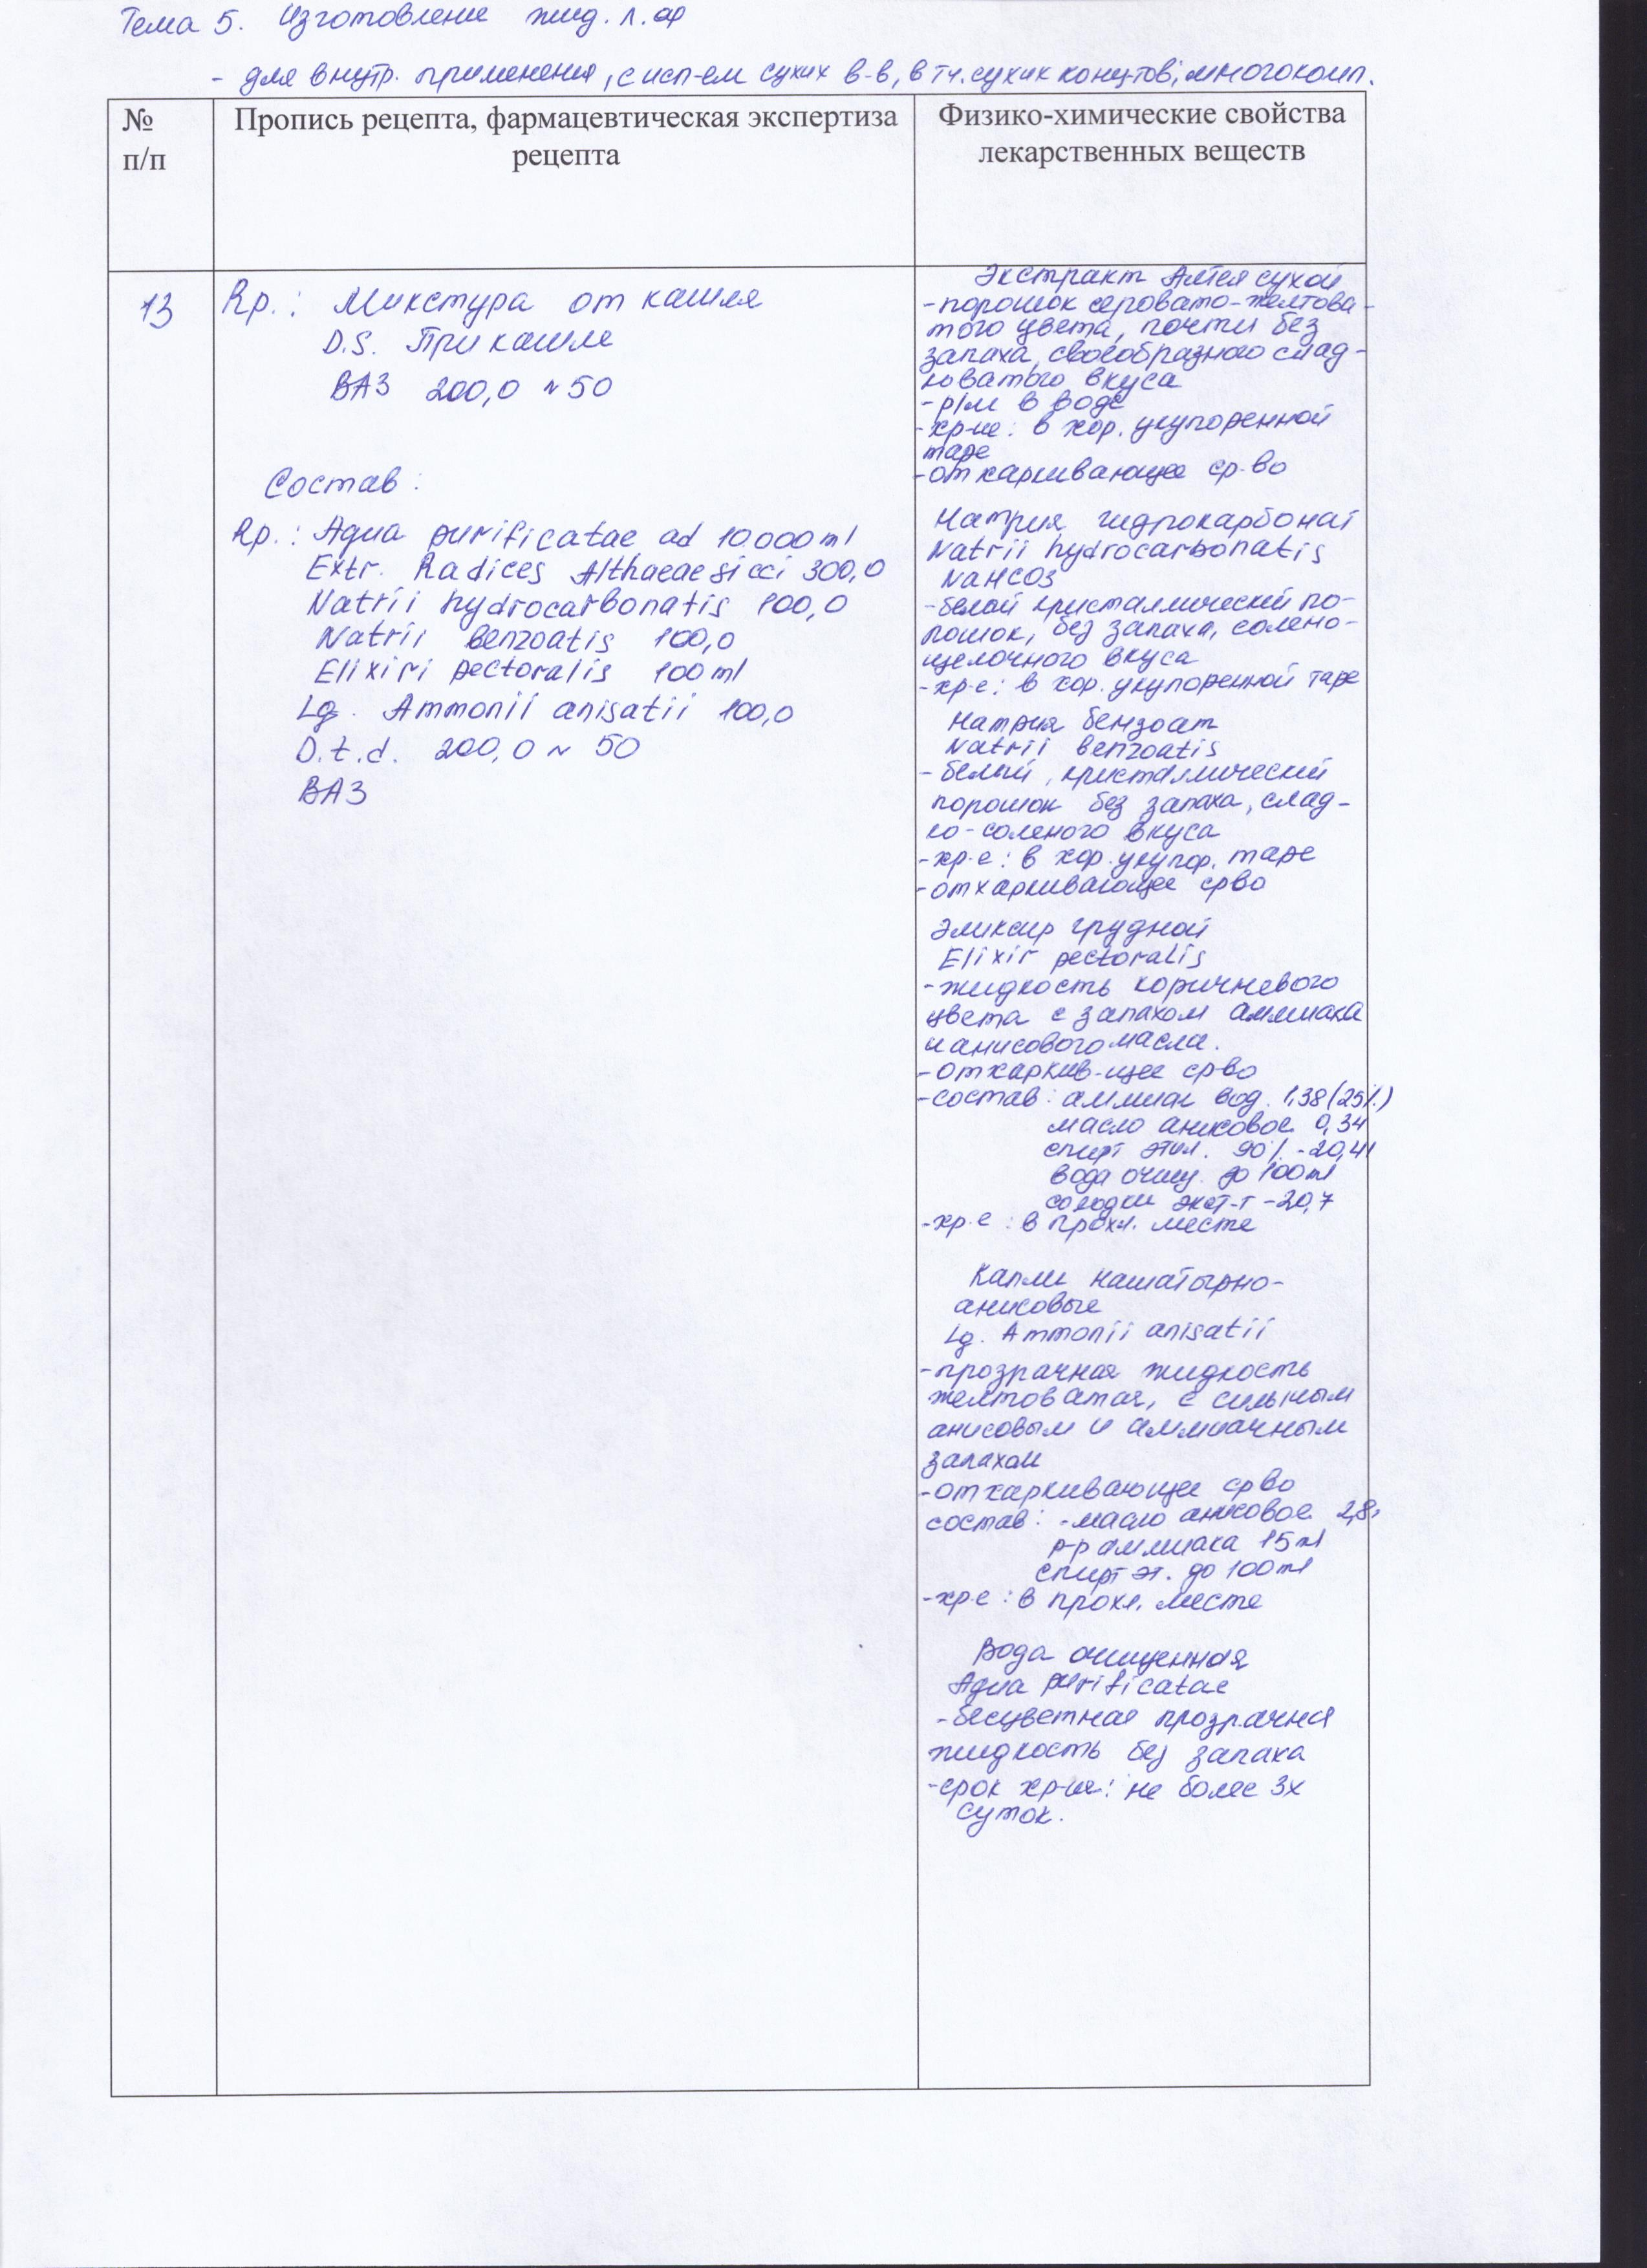 Тема 5. Изготовление жид. л. ф
- для внутр. применения, с исп-ем сухих в-в, в т.ч. сухих конц-тов, многокомп.
№
п/п
Пропись рецепта, фармацевтическая экспертиза
рецепта
Физико-химические свойства
лекарственных веществ
13
Rp.: Микстура от кашля
D.S. При кашле
ВАЗ 200,0 N 50
Состав:
Rp.: Aqua purificatae ad 10000 ml
Extr. Radices Althaeae sicci 300,0
Natrii hydrocarbonatis 100,0
Natrii benzoatis 100,0
Elixiri pectoralis 100 ml
Lg. Ammonii anisatii 100,0
D.t.d. 200,0 N 50
ВАЗ
Экстракт Алтея сухой
- порошок серовато-желтова-
того цвета, почти без
запаха, своеобразного слад-
коватого вкуса
- р/м в воде
- хр-ие: в хор. укупоренной
таре
- отхаркивающее ср-во
Натрия гидрокарбонат
Natrii hydrocarbonatis
NaHCO3
- белый кристаллический по-
рошок, без запаха, солено-
щелочного вкуса
- хр-е: в хор. укупоренной таре
Натрия бензоат
Natrii benzoatis
- белый, кристаллический
порошок без запаха, слад-
ко-соленого вкуса
- хр-е: в хор. укупор. таре
- отхаркивающее ср-во
Эликсир грудной
Elixir pectoralis
- жидкость коричневого
цвета с запахом аммиака
и анисового масла.
- отхаркив-щее ср-во
- состав: аммиак вод. 1,38 (25%)
масло анисовое 0,34
спирт этил. 90% - 20,41
вода очищ. до 100 ml
солодки экст-т - 20,7
- хр-е: в прохл. месте
Капли нашатырно-
анисовые
Lg. Ammonii anisatii
- прозрачная жидкость
желтоватая, с сильным
анисовым и аммиачным
запахом
- отхаркивающее ср-во
состав: - масло анисовое 2,8
р-р аммиака 15 ml
спирт эт. до 100 ml
- хр-е: в прохл. месте
Вода очищенная
Aqua purificatae
- бесцветная прозрачная
жидкость без запаха
- срок хр-ия: не более 3х
суток.